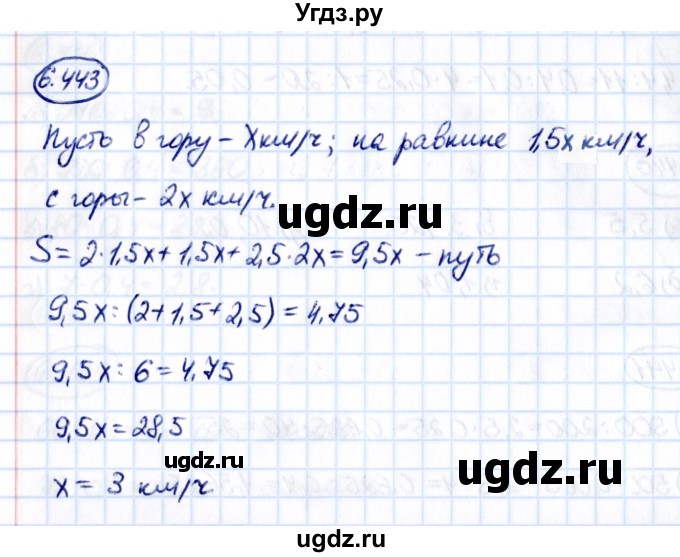 Угдз.ру
6.443
Пусть в гору - х км/ч; на равнине 1,5х км/ч,
с горы - 2х км/ч.
ugdz.ru
S = 2·1,5х + 1,5х + 2,5·2х = 9,5х - путь
9,5х : (2 + 1,5 + 2,5) = 4,75
9,5х : 6 = 4,75
9,5х = 28,5
ugdz.ru
ugdz.ru
х = 3 км/ч.
ugdz.ru